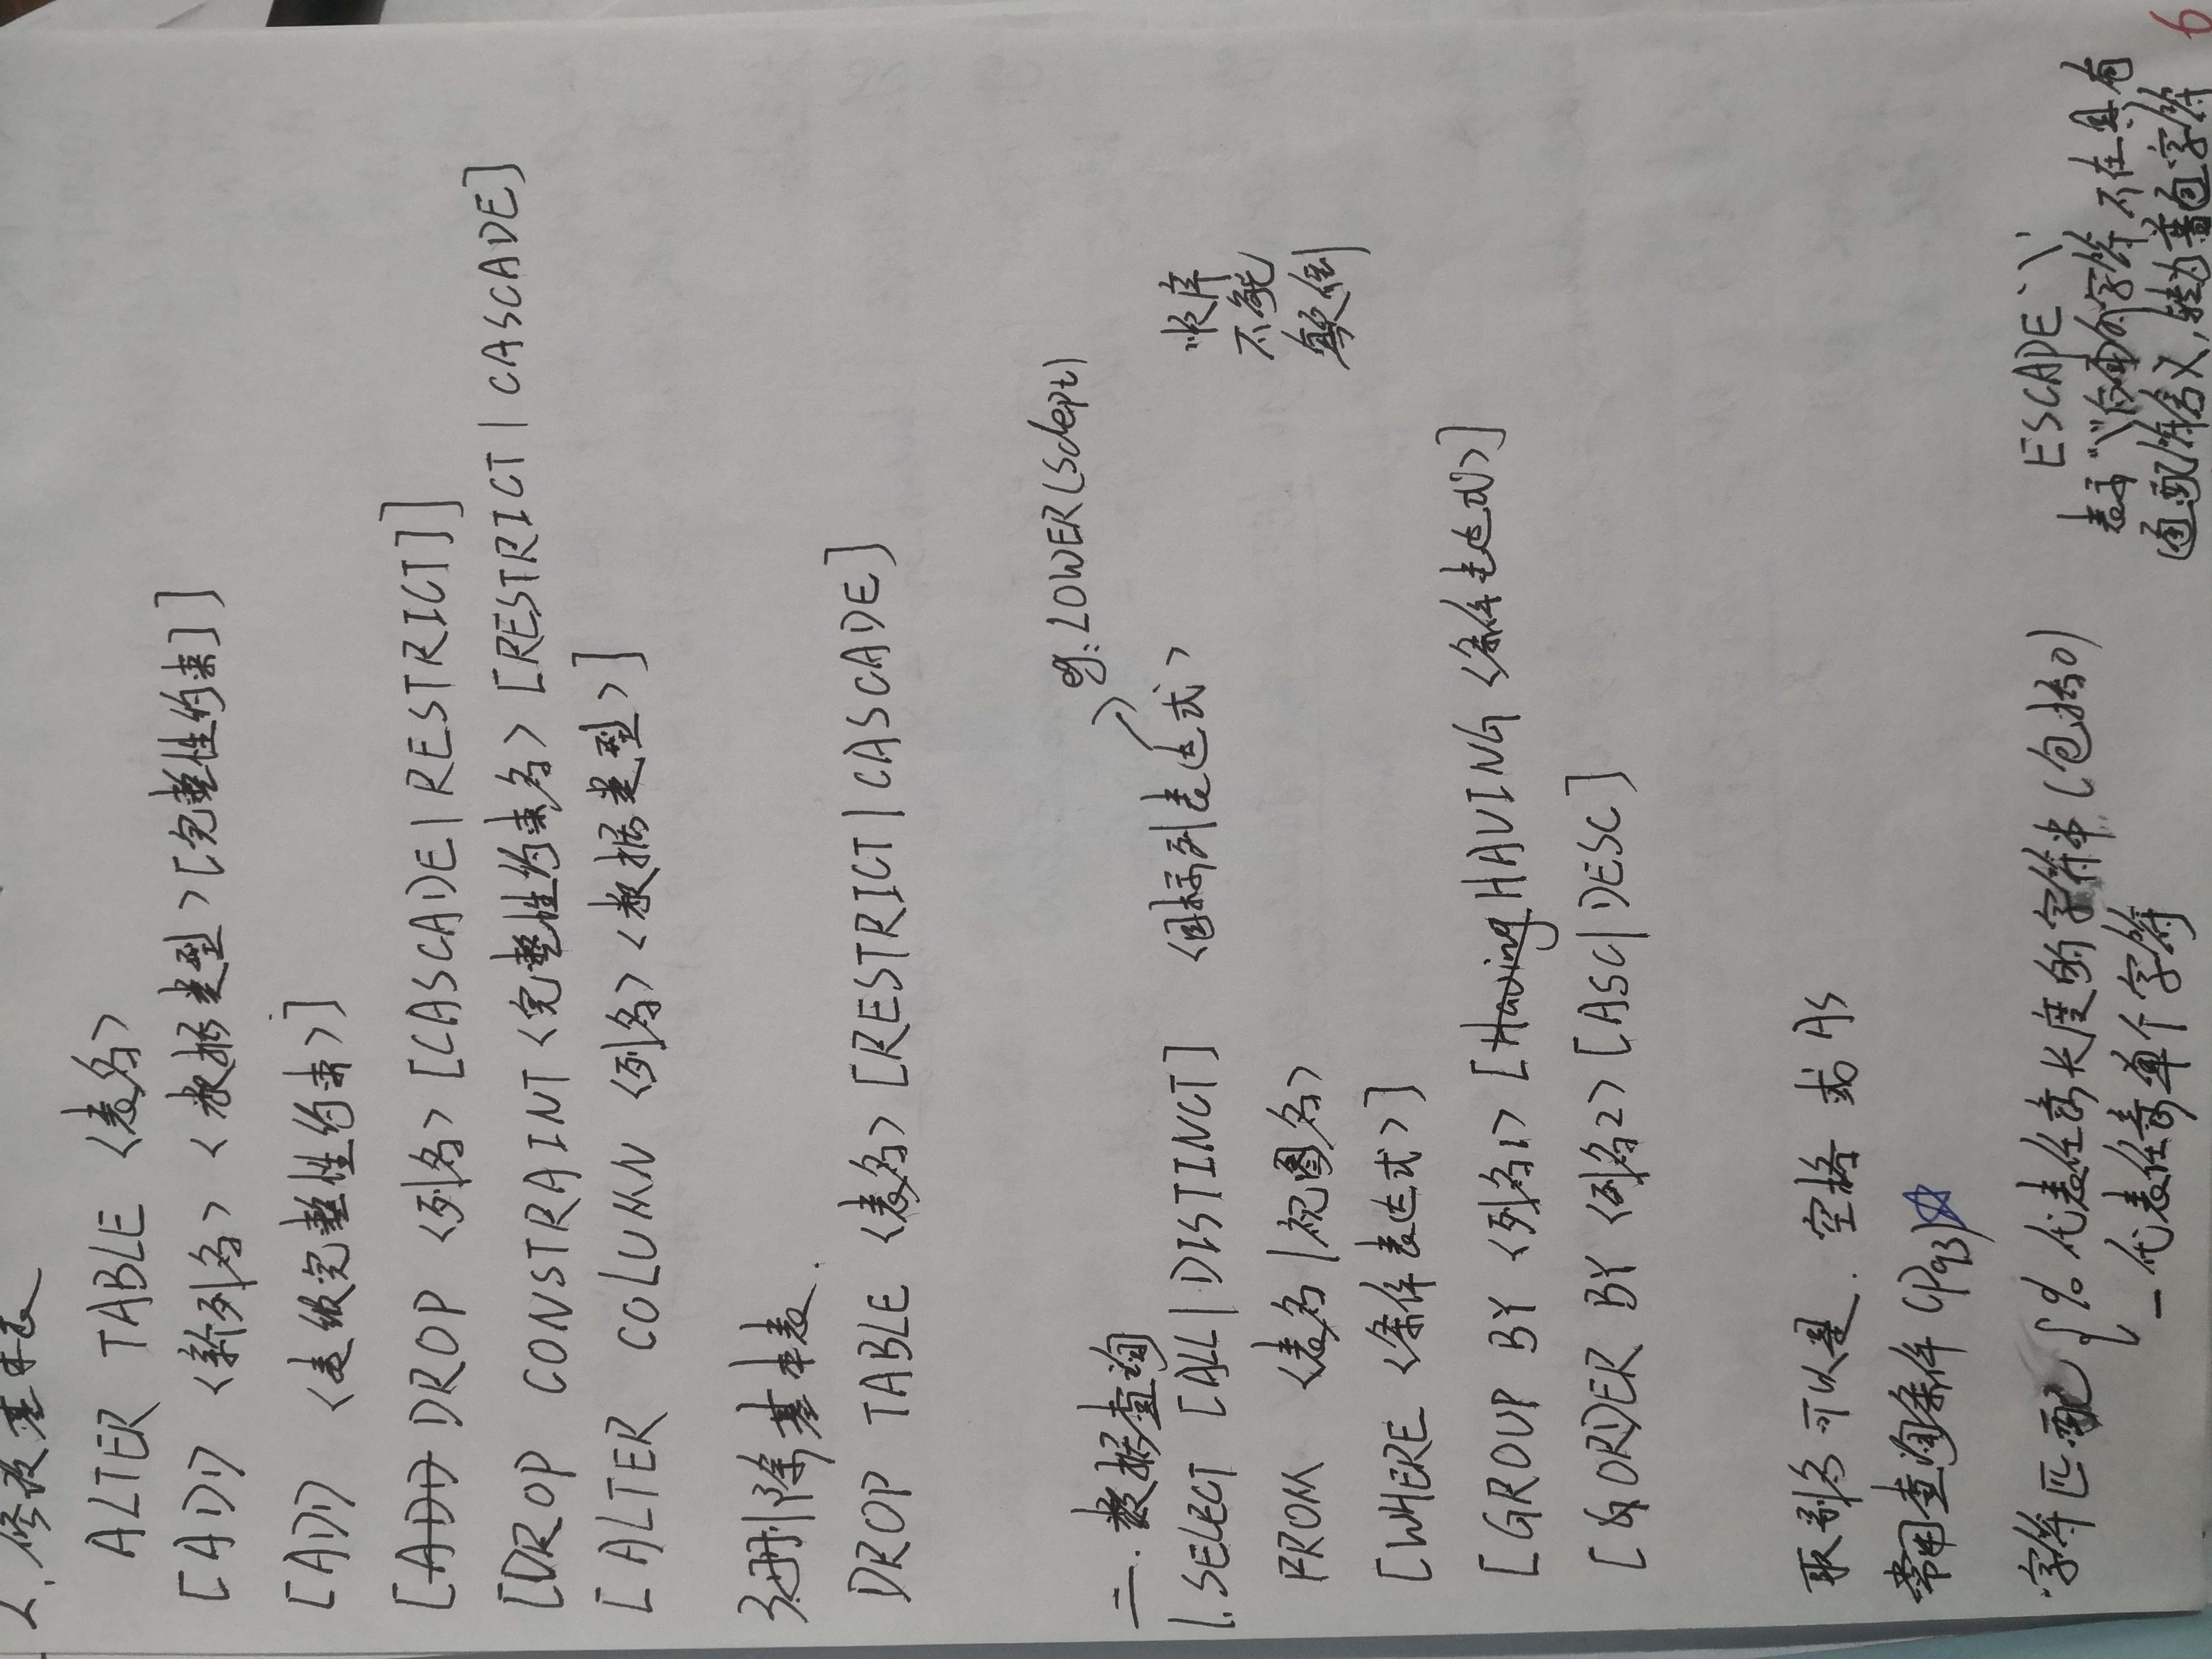 2. 修改基本表
ALTER TABLE <表名>
[ADD <新列名> <数据类型> [完整性约束]]
[ADD <表级完整性约束>]
[ADD DROP <列名> [CASCADE|RESTRICT]]
[DROP CONSTRAINT <完整性约束名> [RESTRICT|CASCADE]
[ALTER COLUMN <列名> <数据类型>]
3.删除基本表.
DROP TABLE <表名> [RESTRICT|CASCADE]
二. 数据查询
例: LOWER(Sdept)
1. SELECT [ALL|DISTINCT] <目标列表达式>
顺序
不能
颠倒
FROM <表名|视图名>
[WHERE <条件表达式>]
[GROUP BY <列名1> [Having HAVING <条件表达式>]
[ORDER BY <列名2> [ASC|DESC]
取别名可以是. 空格 或 AS
常用查询条件 (P93)☆
字符匹配 { % 代表任意长度的字符串 (包括0)
_ 代表任意单个字符
ESCAPE '\'
表示"\"后面的字符不在具有
通配符含义,转为普通字符
6